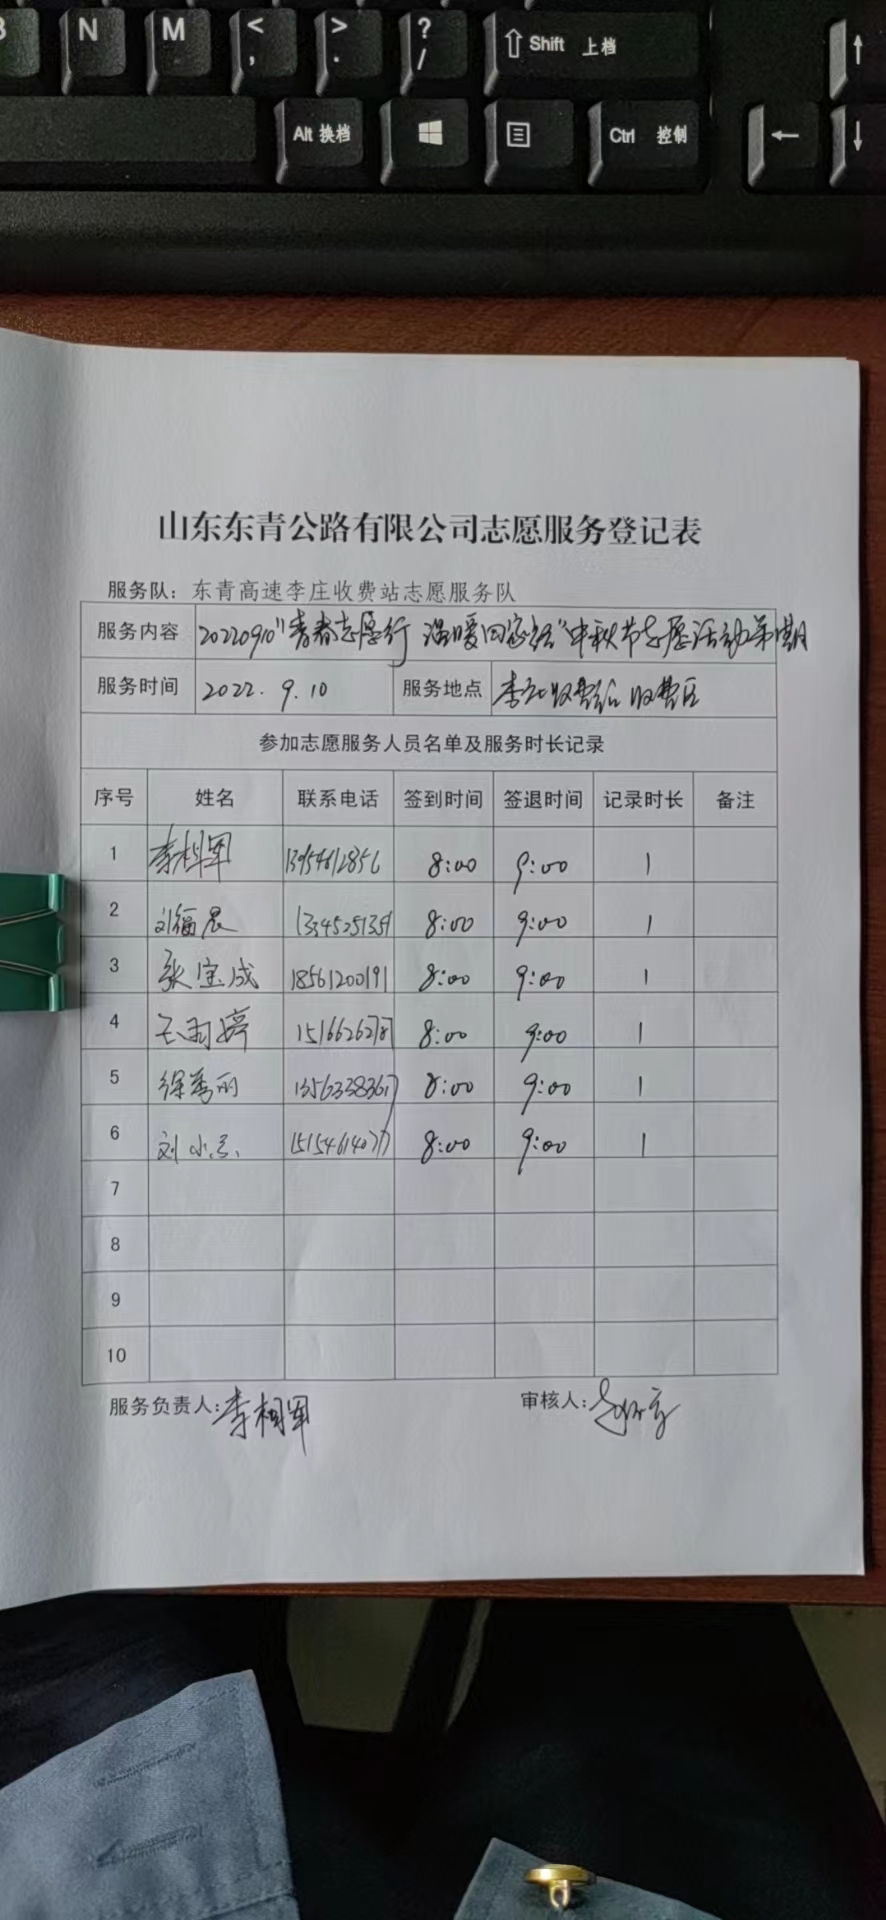 N M < , > . ? / ⇧ Shift 上档 ↑
Alt 换档 Ctrl 控制 ← ↓
山东东青公路有限公司志愿服务登记表
服务队：东青高速李庄收费站志愿服务队
服务内容 20220910"青春志愿行 温暖回家路"中秋节志愿活动第 期
服务时间 2022.9.10 服务地点 李庄收费站 收费区
参加志愿服务人员名单及服务时长记录
序号 姓名 联系电话 签到时间 签退时间 记录时长 备注
1 李相军 13954612856 8:00 9:00 1
2 刘福晨 8:00 9:00 1
3 张宝成 18561200191 8:00 9:00 1
4 王雨婷 8:00 9:00 1
5 徐秀丽 13563383617 8:00 9:00 1
6 刘小 15154614077 8:00 9:00 1
7
8
9
10
服务负责人：李相军 审核人：